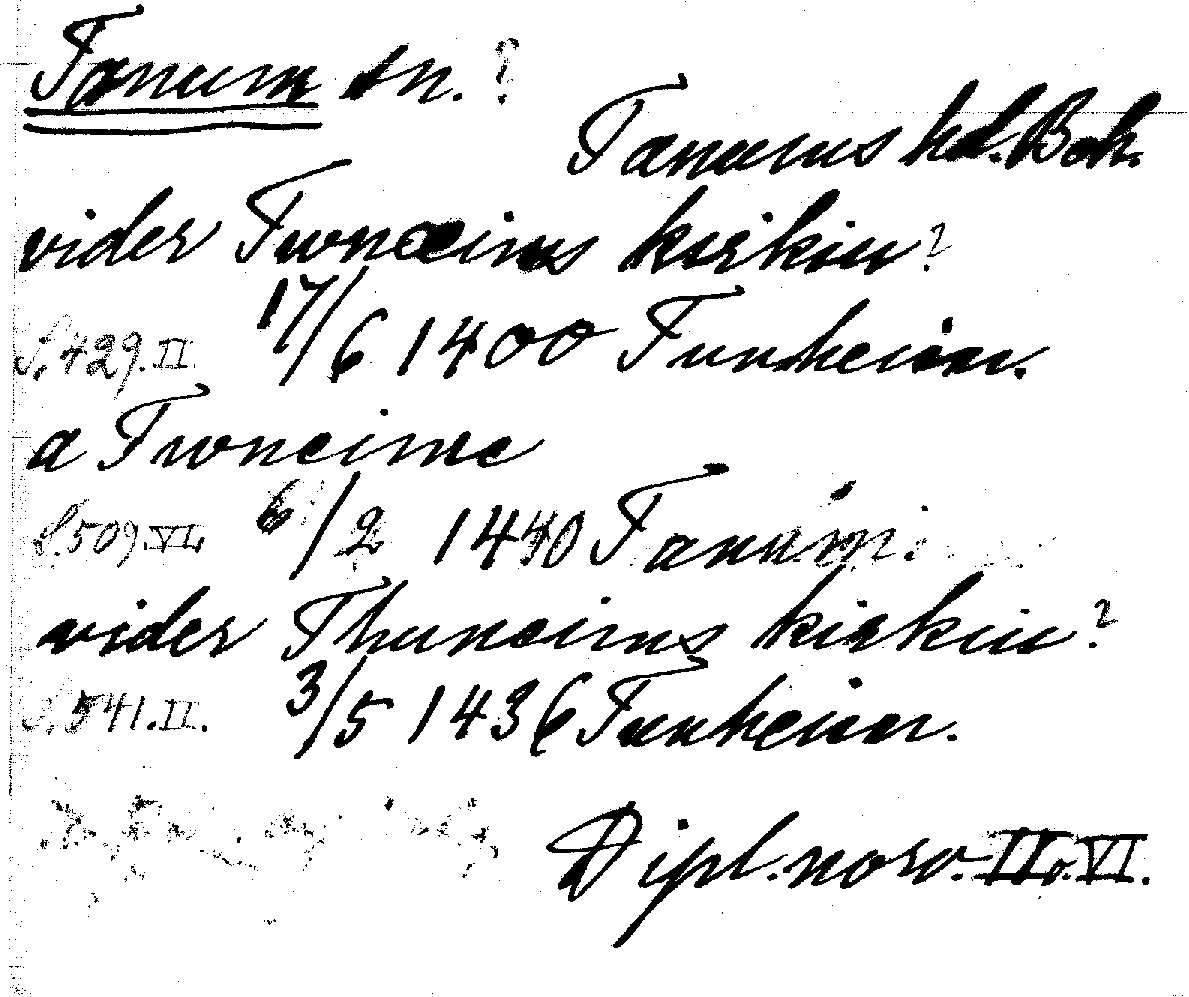 Tanum sn. ?
Tanums hd. Boh.
vider Twneims kirkiu ?
S. 429. II. 17/6 1400 Tunheim.
a Twneime
S. 509 VI. 6/2 1440 Tanum.
vider Thuneims kirkiu ?
S. 541. II. 3/5 1436 Tunheim.
Dipl. norv. II o. VI.